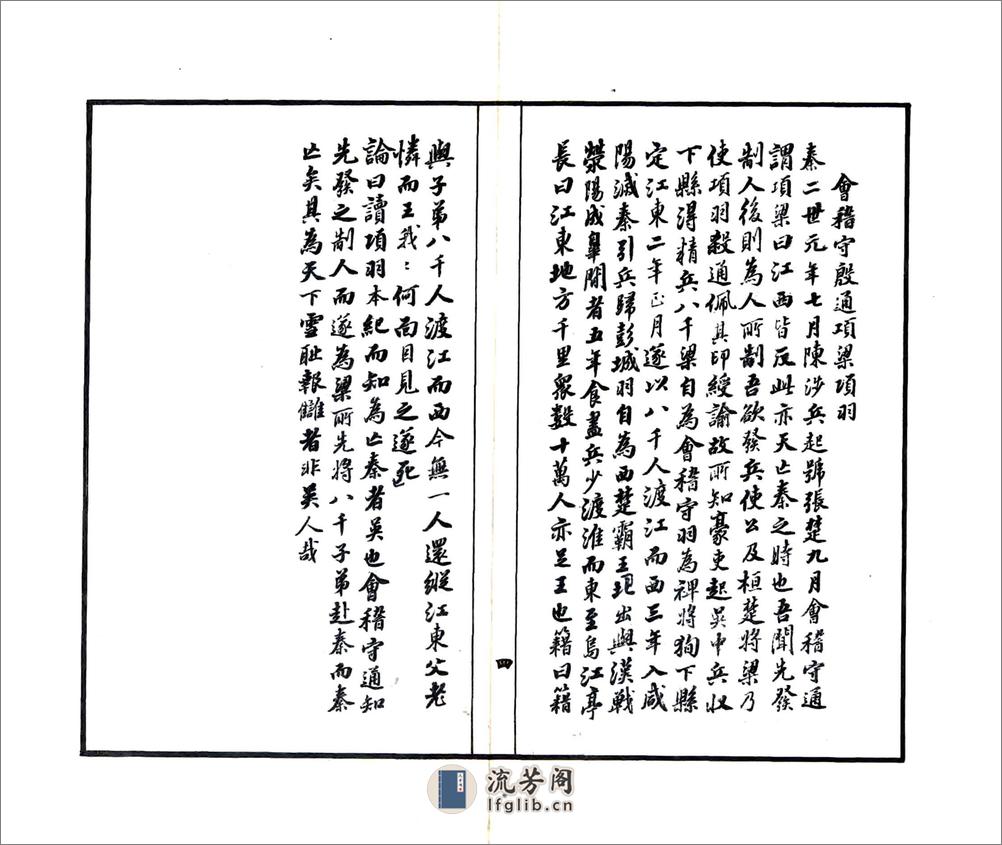 會稽守殷通項梁項羽
秦二世元年七月陳涉兵起號張楚九月會稽守通
謂項梁曰江西皆反此亦天亡秦之時也吾聞先發
制人後則為人所制吾欲發兵使公及桓楚將梁乃
使項羽殺通佩其印綬諭故所知豪吏起吳中兵收
下縣得精兵八千梁自為會稽守羽為裨將狥下縣
定江東二年正月遂以八千人渡江而西三年入咸
陽滅秦引兵歸彭城羽自為西楚霸王出與漢戰
滎陽成臯間者五年食盡兵少渡淮而東至烏江亭
長曰江東地方千里衆數十萬人亦足王也籍曰籍
四
與子弟八千人渡江而西今無一人還縱江東父老
憐而王我：何面目見之遂死
論曰讀項羽本紀而知為亡秦者吳也會稽守通知
先發之制人而遂為梁所先將八千子弟赴秦而秦
亡矣其為天下雪耻報讎者非吳人哉
流芳阁
lfglib.cn